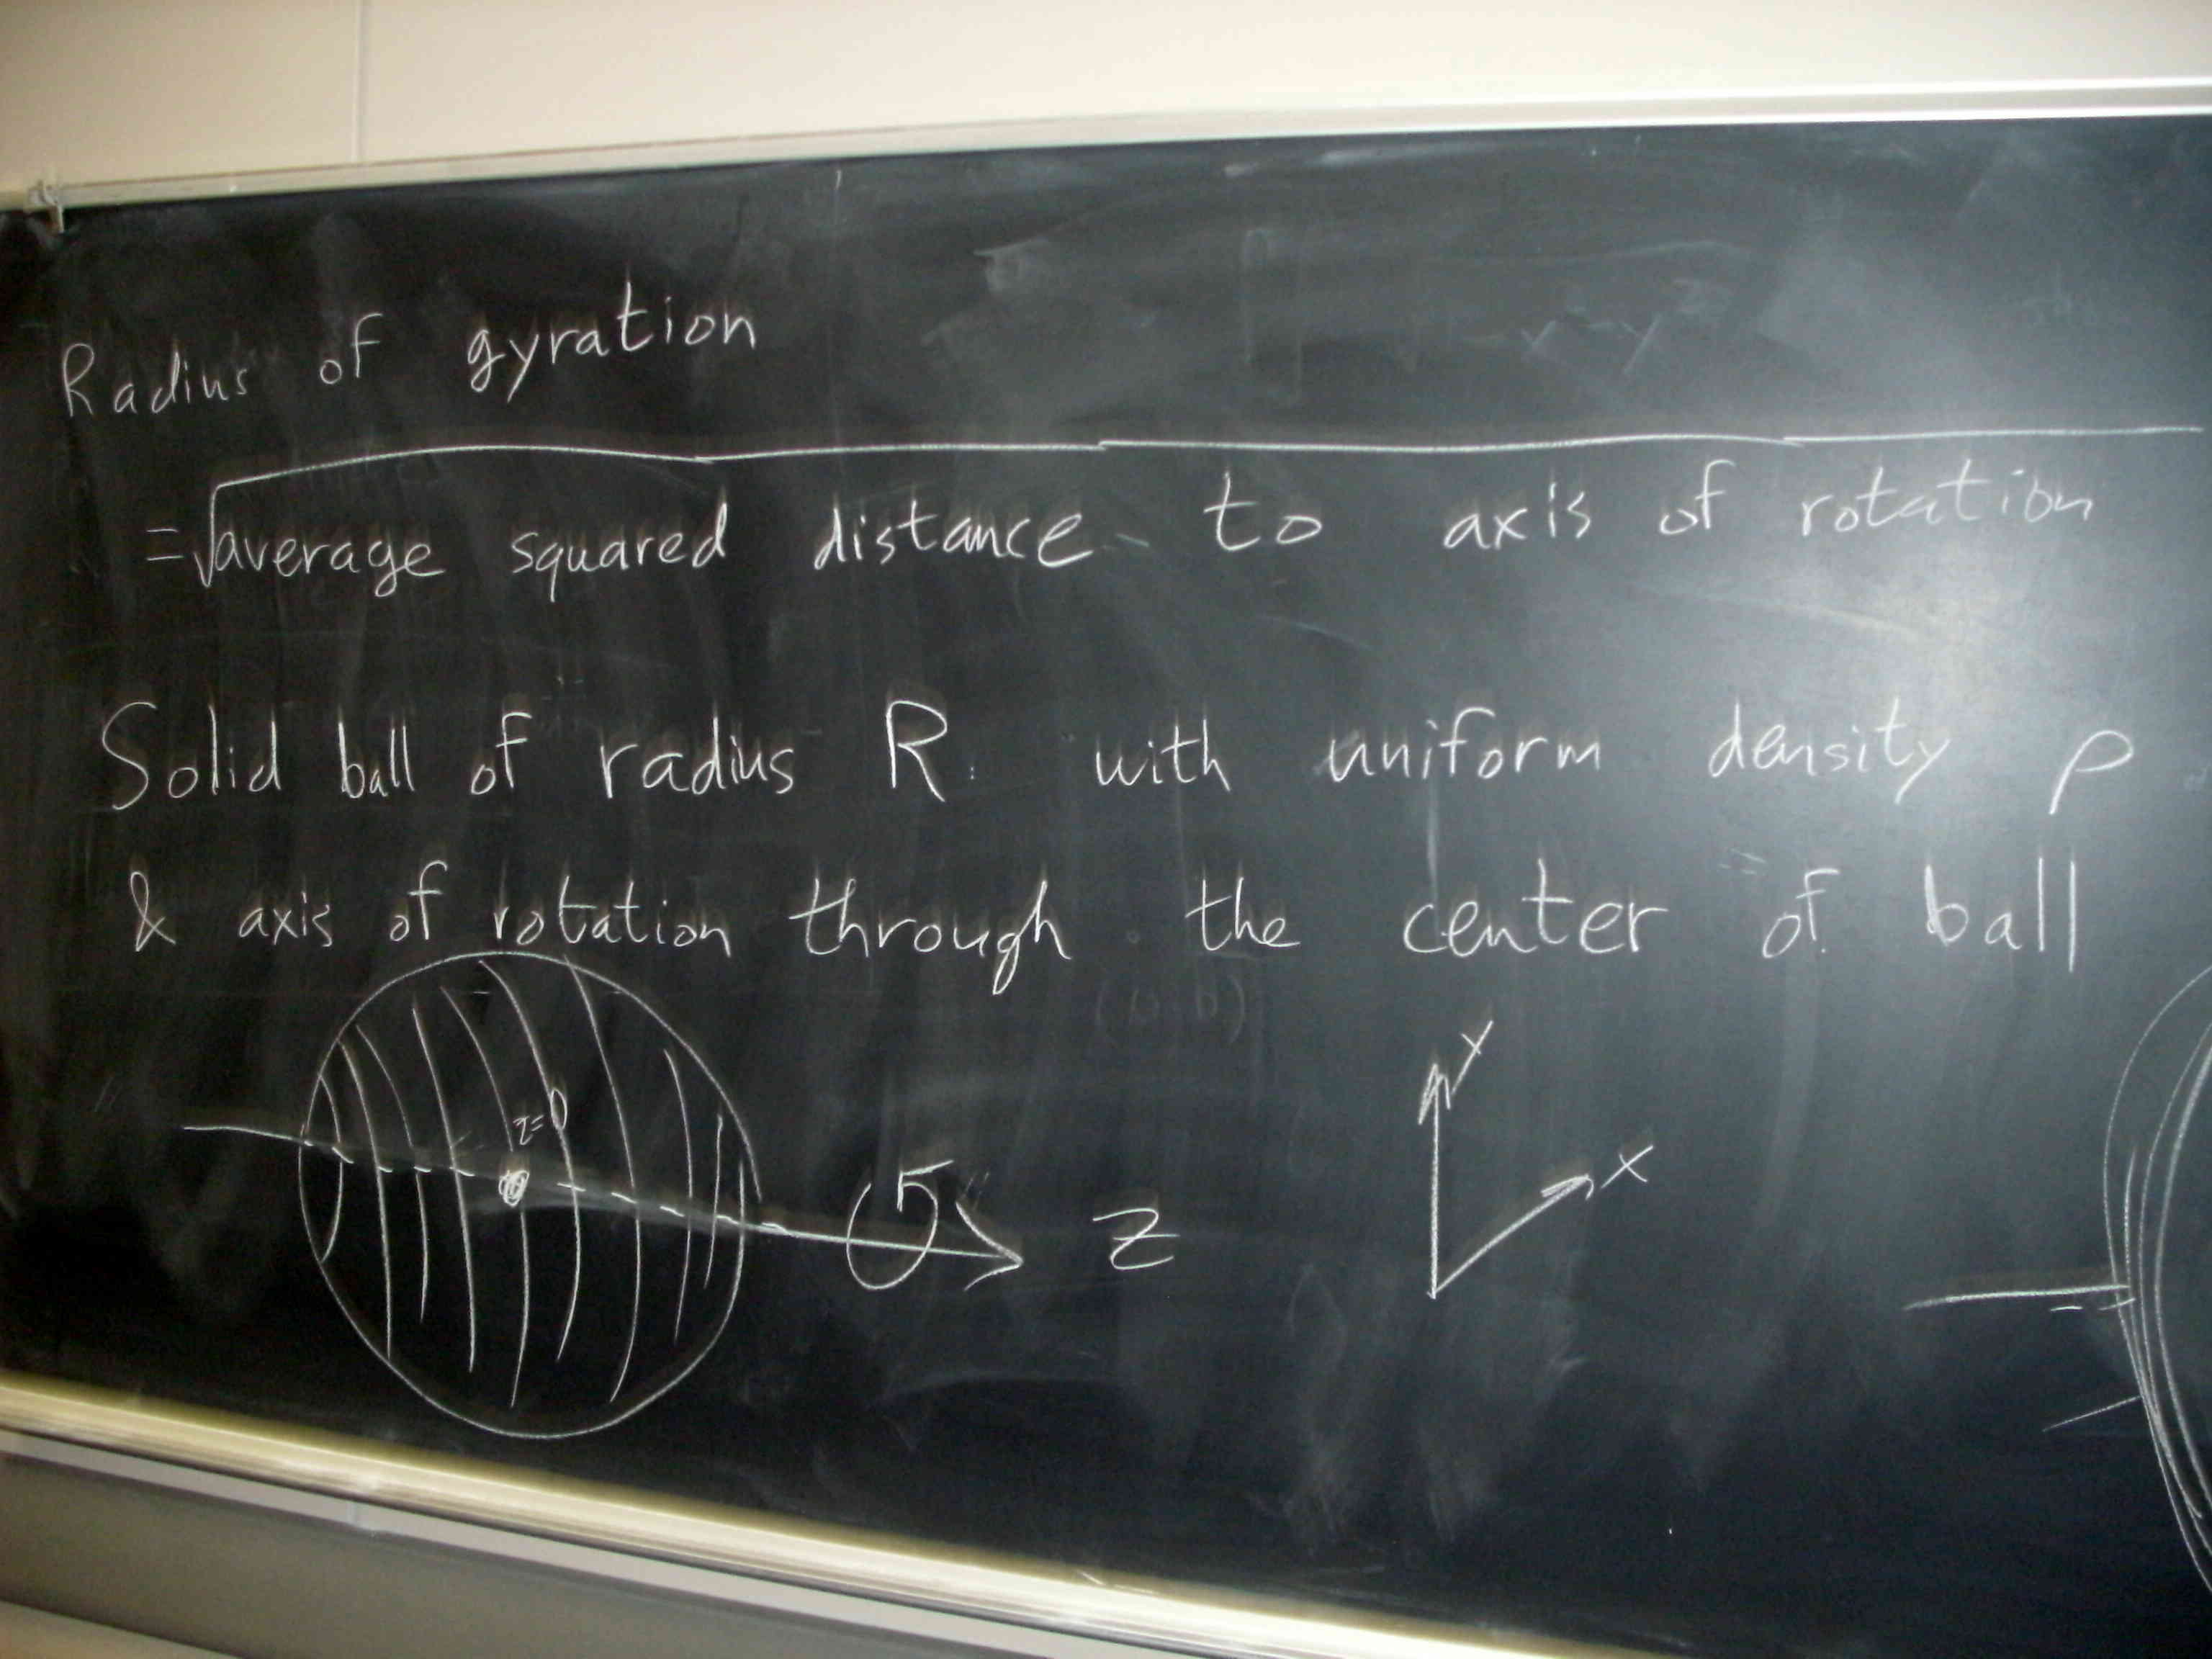 Radius of gyration
=√average squared distance to axis of rotation
Solid ball of radius R with uniform density ρ
& axis of rotation through the center of ball
z=0
z
y
x